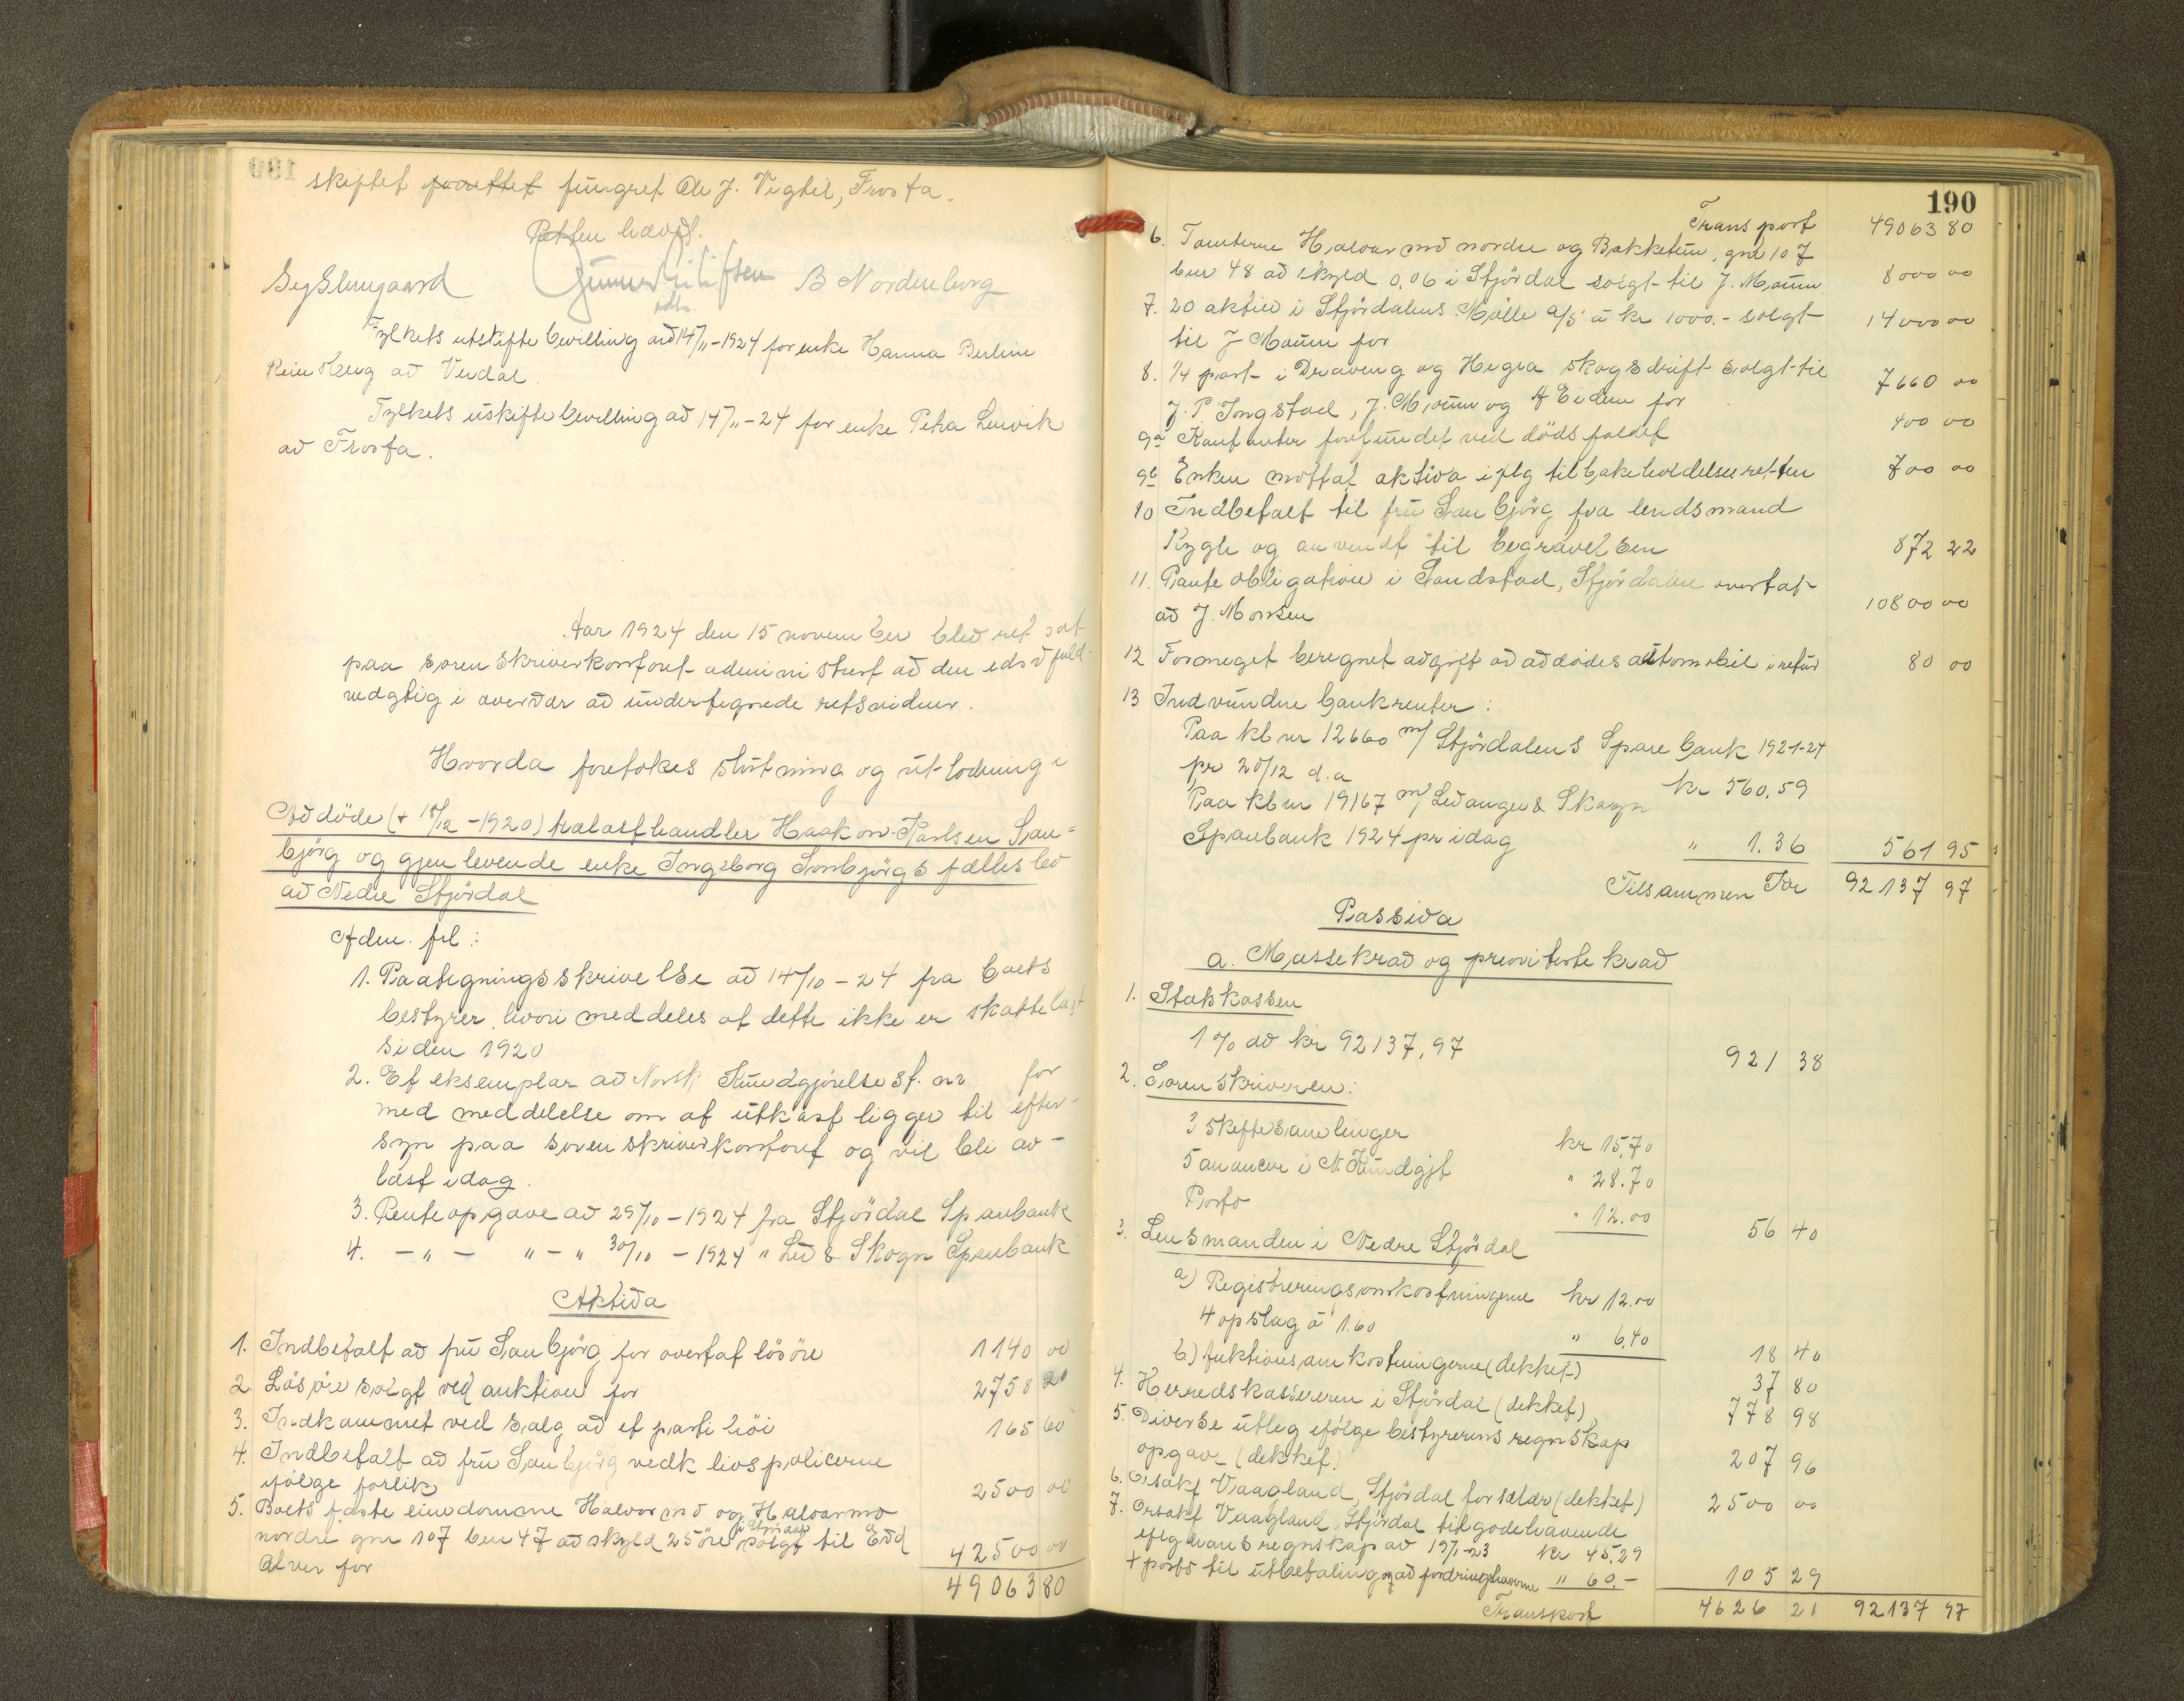 skiftet forrettet fungret Ole J. Vigtil, Frosta.
Retten hævet.
B Nordenborg
Fylkets utskiftebevilling av 14/11-1924 for enke Hanna Berline
av Verdal.
Fylkets uskiftebevilling av 14/11-24 for enke Petra Leirvik
av Frosta.
Aar 1924 den 15 november blev ret sat
paa sorenskriverkontoret administrert av den edsv fuld-
mægtig i overvær av undertegnede retsvidner.
Hvorda foretokes slutning og utlodning i
Avdöde (+ 18/12-1920) Haakon Karlsen San=
björg og gjenlevende enke Ingeborg Sanbjörgs fællesbo
av Nedre Stjördal
Adm. frl:
1. Paategningsskrivelse av 14/10-24 fra boets
bestyrer, hvori meddeles at dette ikke er skattelagt
siden 1920
2. Et eksemplar av Norsk Kundgjörelsest. nr for
med meddelelse om at utkast ligger til efter-
syn paa sorenskriverkontoret og vil bli av-
läst idag.
3. Renteopgave av 29/10-1924 fra Stjördal Sparebank
4. -"- "-" 30/10-1924 " Lev & Skogn Sparebank
Aktiva
1. Indbetalt av fru Sanbjörg for overtat lösöre 1140 00
2. Lösöre solgt ved auktion for 2758 20
3. Indkommet ved salg av et parti höi 165 60
4. Indbetalt av fru Sanbjörg vedk livspolicerne
ifölge forlik 2500 00
5. Boets faste eiendomme Halvarmo og Halvarmo
nordre gnr 107 bnr 47 av skyld 25 öre i Stjördal solgt til Edv
Alver for 42500 00
49063 80
190
Transport 49063 80
6. Tomterne Halvarmo nordre og Bakketun, gnr 107
bnr 48 av skyld 0,06 i Stjördal solgt til J. Mauun 8000 00
7. 20 aktier i Stjördalens Mölle A/S á kr 1000.- solgt
til J Mauun for 14000 00
8. 1/4 part i Draveng og Hegra skogsdrift solgt til
J. P. Ingstad, J. Mauun og A Eidem for 7660 00
9a Kontanter forefundet ved dödsfaldet 400 00
9b Enken mottat aktiva iflg tilbakeholdelsesretten 700 00
10 Indbetalt til fru Sanbjörg fra lendsmand
Rygh og anvendt til begravelsen 872 22
11. Panteobligation i Sandstad, Stjördalen overtat
av J. Morken 10800 00
12 Formeget beregnet avgift av avdödes automobil, retur 80 00
13 Indvundne bankrenter:
Paa kb nr 12660 m/ Stjördalens Sparebank 1921-24
pr 20/12 d.a kr 560,59
Paa kb nr 19167 m/ Levanger & Skogn
Sparebank 1924 pr idag " 1.36 561 95
Tilsammen Kr 92137 97
Passiva
a. Massekrav og prioriterte krav
1. Statskassen
1 % av kr 92137,97 921 38
2. Sorenskriveren:
3 skiftesamlinger kr 15,70
5 anoncer i N. Kundgjt " 28.70
Porto " 12.00 56 40
3. Lensmanden i Nedre Stjördal
a) Registreringsomkostningerne kr 12.00
4 opslag á 1.60 " 6,40 18 40
b) auktionsomkostningerne (dekket) 37 80
4. Herredskassereren i Stjördal (dekket) 778 98
5. Diverse utleg ifölge bestyrerens regnskap
opgav (dekket) 207 96
6. O.r.sakf Vaagland, Stjördal for salær (dekket) 2500 00
7. Orsakf Vaagland, Stjördal tilgodehavende
iflg hans regnskap av 19/1-23 kr 45,29
+ porto til utbetaling av fordringshaverne " 60.- 105 29
Transport 4626 21 92137 97